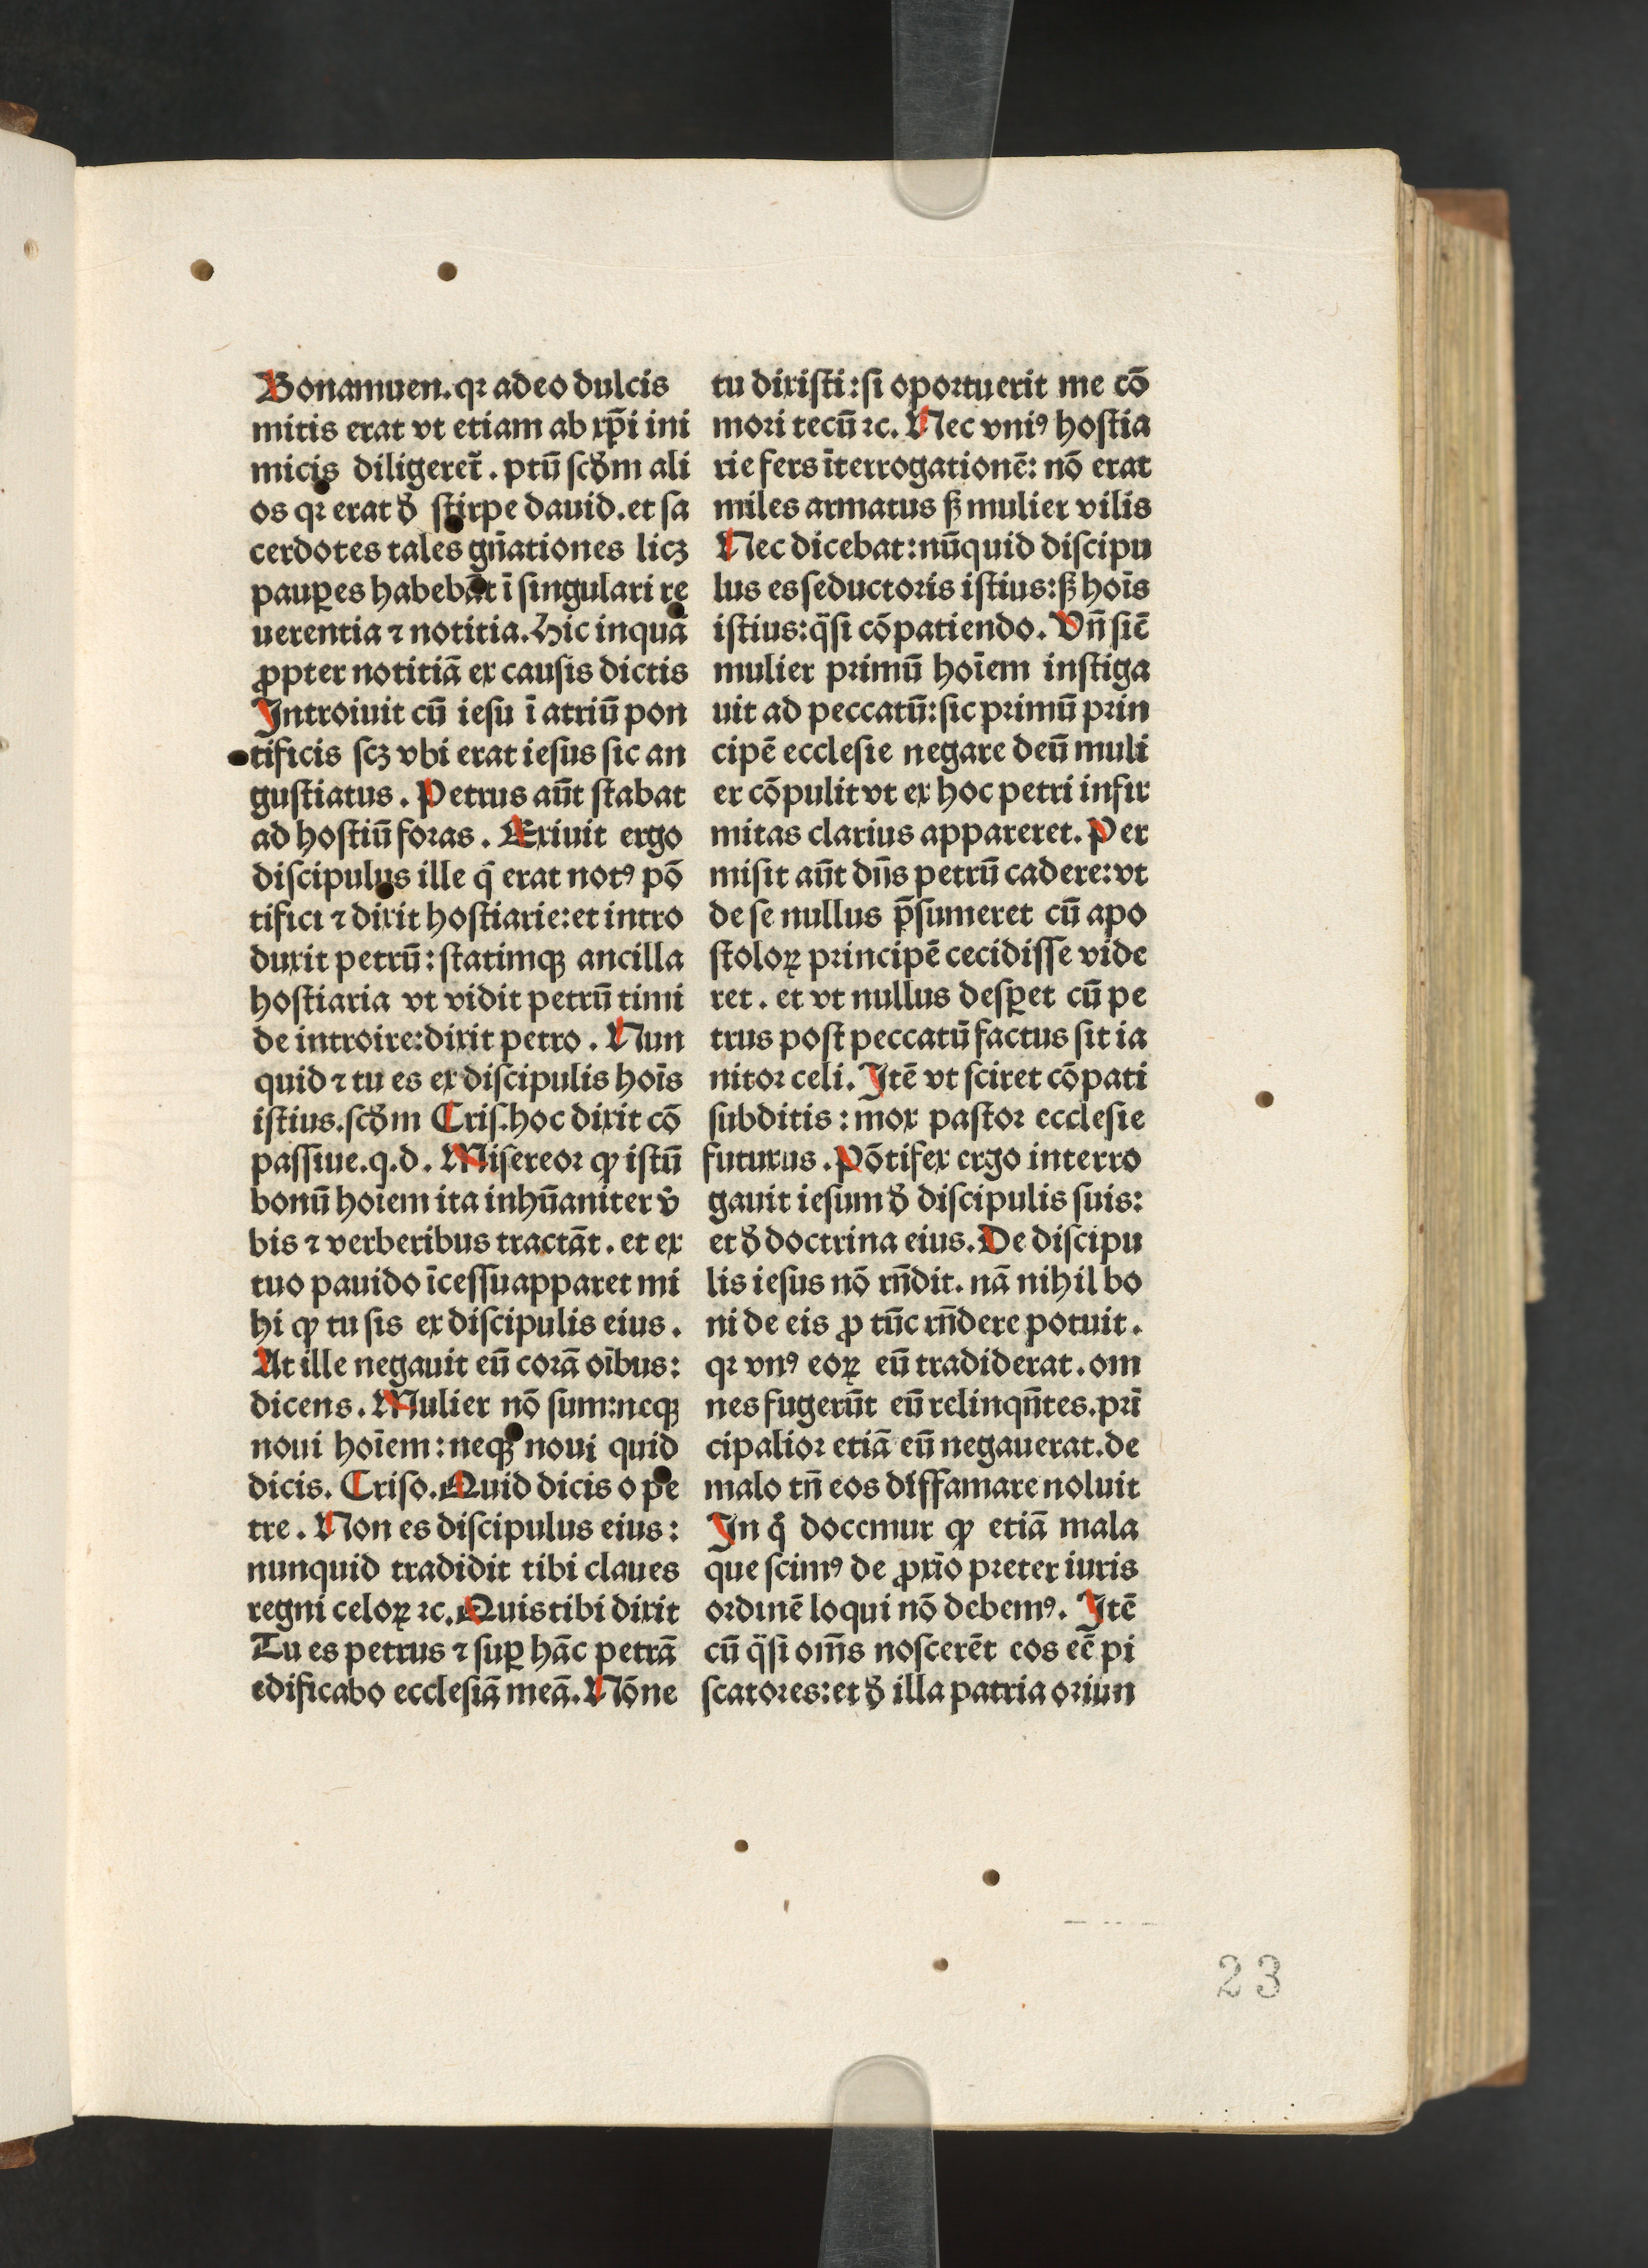 Bonamuen.qꝛ adeo dulcis
mitis erat vt etiam ab xp̄i ini
micis diligeret᷑. ptū ſcd̄m ali
os qꝛ erat ð ſtirpe dauid. et ſa
cerdotes tales gn̄ationes licꝫ
paup̲es habebāt ī ſingulari re
uerentia ⁊ notitia. Hic inquā
ꝓpter notitiā ex cauſis dictis
Introiuit cū ieſu ī atriū pon
tificis ſcꝫ vbi erat ieſus ſic an
guſtiatus. Petrus aūt ſtabat
ad hoſtiū foras. Exiuit ergo
diſcipulus ille q̄ erat notꝰ pō
tifici ⁊ dixit hoſtiarie: et intro
duxit petrū: ſtatimqꝫ ancilla
hoſtiaria vt vidit petrū timi
de introire: dixit petro. Nun
quid ⁊ tu es ex diſcipulis hoīs
iſtius. ſcd̄m Criſ. hoc dixit cō
paſſiue. q.d. Miſereor ꝙ iſtū
bonū hoīem ita inhūaniter v̄
bis ⁊ verberibus tractāt. et ex
tuo pauido īceſſu apparet mi
hi ꝙ tu ſis ex diſcipulis eius.
At ille negauit eū corā oībus:
dicens. Mulier nō ſum: neqꝫ
noui hoīem: neqꝫ noui quid
dicis. Criſo. Quid dicis o pe
tre. Non es diſcipulus eius:
nunquid tradidit tibi claues
regni celoꝝ ⁊c. Quis tibi dixit
Tu es petrus ⁊ ſuꝑ hāc petrā
edificabo eccleſiā meā. Nōne
tu dixiſti: ſi oportuerit me cō
mori tecū ⁊c. Nec vniꝰ hoſtia
rie fers īterrogationē: nō erat
miles armatus ſꝫ mulier vilis
Nec dicebat: nūquid diſcipu
lus es ſeductoris iſtius: ſꝫ hoīs
iſtius: q̈ſi cōpatiendo. Vn̄ ſic̄
mulier primū hoīem inſtiga
uit ad peccatū: ſic primū prin
cipē eccleſie negare deū muli
er cōpulit vt ex hoc petri infir
mitas clarius appareret. Per
miſit aūt dn̄s petrū cadere: vt
de ſe nullus p̄ſumeret cū apo
ſtoloꝝ principē cecidiſſe vide
ret. et vt nullus deſꝑet cū pe
trus poſt peccatū factus ſit ia
nitor celi. Itē vt ſciret cōpati
ſubditis: mox paſtor eccleſie
futurus. Pōtifex ergo interro
gauit ieſum ð diſcipulis ſuis:
et ð doctrina eius. De diſcipu
lis ieſus nō rn̄dit. nā nihil bo
ni de eis ꝓ tūc rn̄dere potuit.
qꝛ vnꝰ eoꝝ eū tradiderat. om
nes fugerūt eū relinqn̄tes. prī
cipalior etiā eū negauerat. de
malo tn̄ eos diffamare noluit
In qͦ docemur ꝙ etiā mala
que ſcimꝰ de ꝓxīo preter iuris
ordinē loqui nō debemꝰ. Itē
cū q̈ſi om̄s noſcerēt eos eē pi
ſcatores: et ð illa patria oriun
23